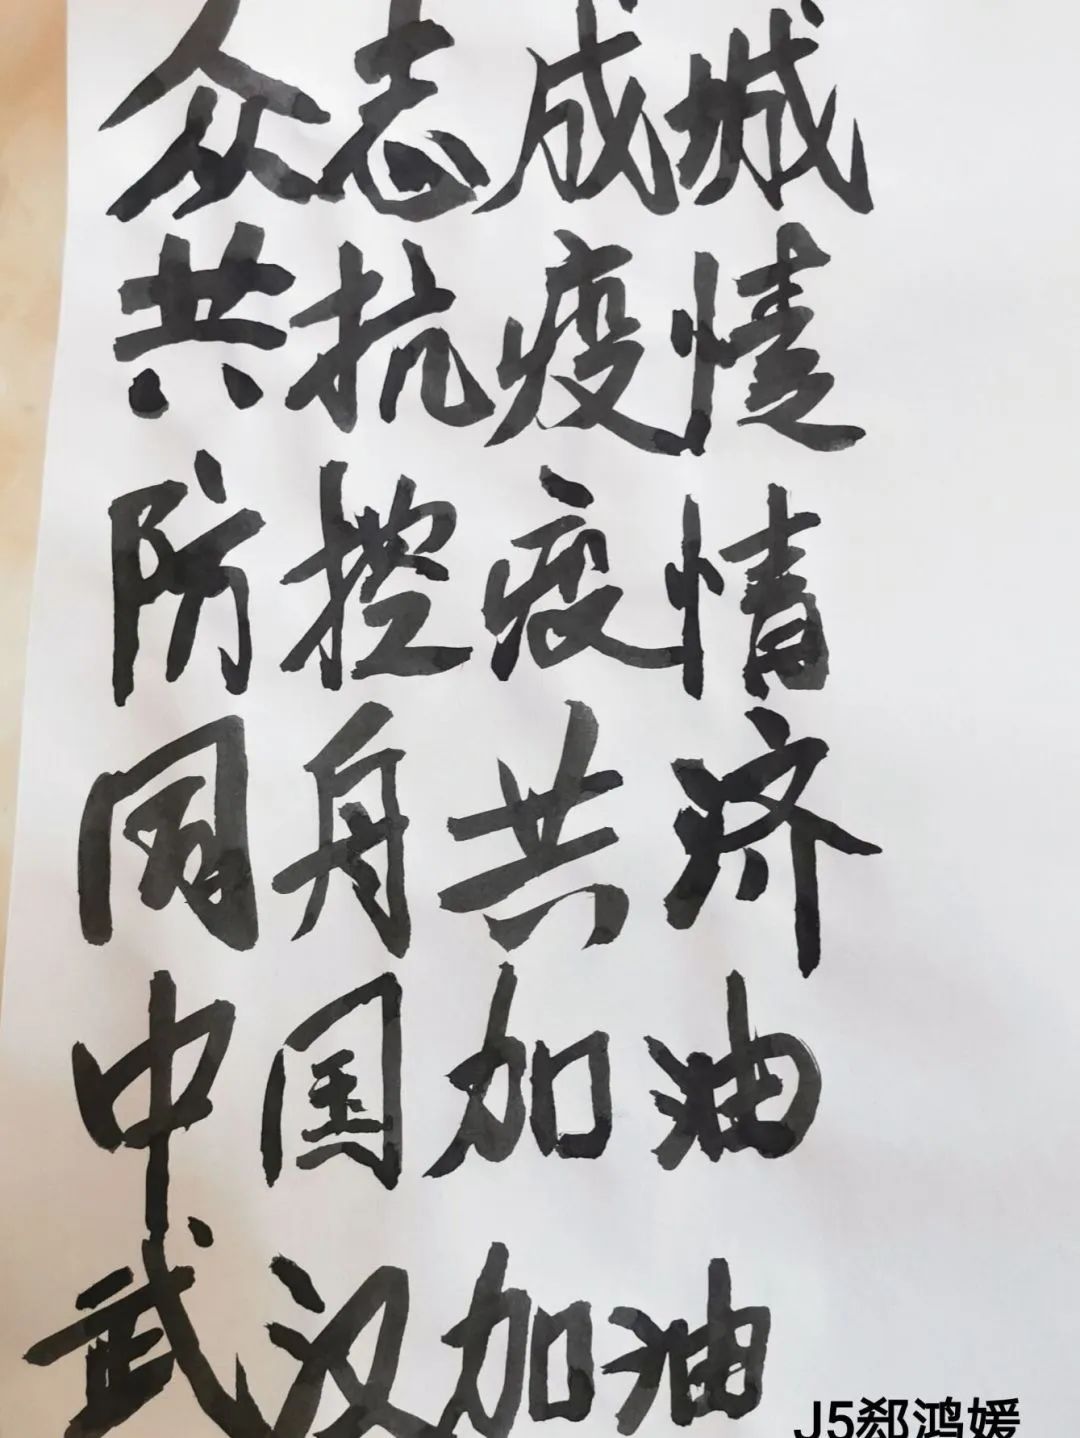 众志成城
共抗疫情
防控疫情
同舟共济
中国加油
武汉加油
J5郄鸿媛